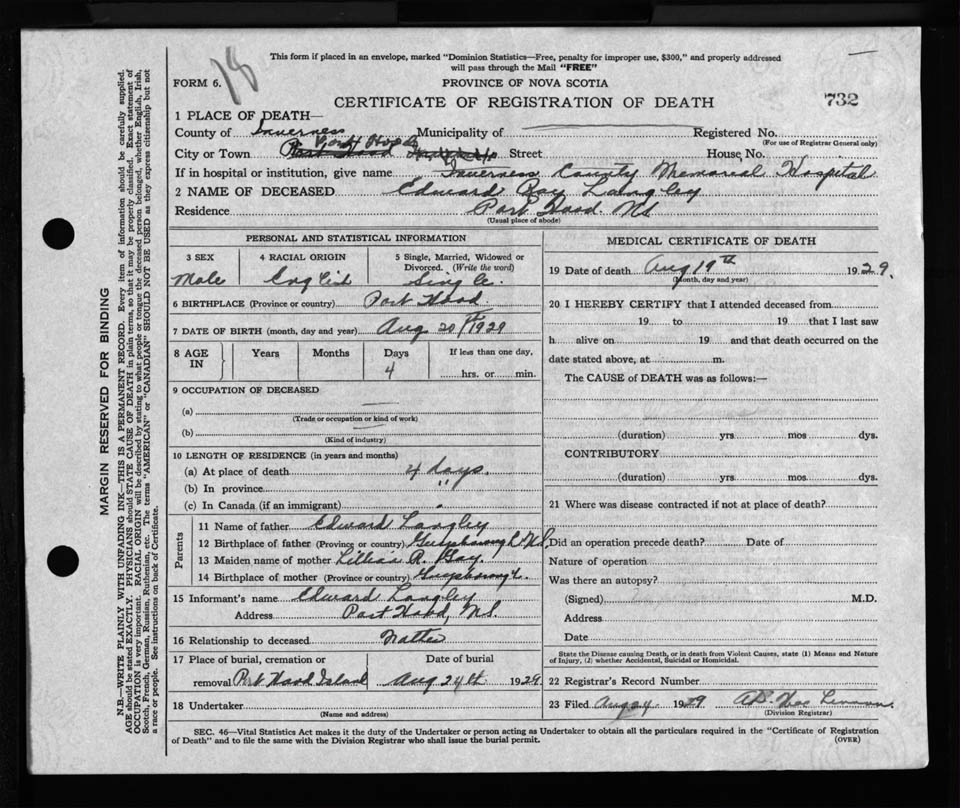 18
This form if placed in an envelope, marked "Dominion Statistics—Free, penalty for improper use, $300," and properly addressed
will pass through the Mail "FREE"
FORM 6.
PROVINCE OF NOVA SCOTIA
CERTIFICATE OF REGISTRATION OF DEATH
732
1 PLACE OF DEATH—
County of Inverness Municipality of Registered No.
(For use of Registrar General only)
City or Town Port Hood Street House No.
If in hospital or institution, give name Inverness County Memorial Hospital
2 NAME OF DECEASED Edward Roy Langley
Residence Port Hood. NS
(Usual place of abode)
PERSONAL AND STATISTICAL INFORMATION
3 SEX 4 RACIAL ORIGIN 5 Single, Married, Widowed or
Divorced. (Write the word)
Male English Single.
6 BIRTHPLACE (Province or country) Port Hood
7 DATE OF BIRTH (month, day and year) Aug 20th 1929
8 AGE IN Years Months Days If less than one day,
4 hrs. or min.
9 OCCUPATION OF DECEASED
(a)
(Trade or occupation or kind of work)
(b)
(Kind of industry)
10 LENGTH OF RESIDENCE (in years and months)
(a) At place of death 4 days.
(b) In province "
(c) In Canada (if an immigrant)
Parents
11 Name of father Edward Langley
12 Birthplace of father (Province or country) Guysborough NS
13 Maiden name of mother Lillias R. Gay.
14 Birthplace of mother (Province or country) Guysborough.
15 Informant's name Edward Langley
Address Port Hood, NS.
16 Relationship to deceased
17 Place of burial, cremation or Date of burial
removal Port Hood Island Aug 24th 1929
18 Undertaker
(Name and address)
MEDICAL CERTIFICATE OF DEATH
19 Date of death Aug 19th 1929.
(Month, day and year)
20 I HEREBY CERTIFY that I attended deceased from
19 to 19 that I last saw
h alive on 19 and that death occurred on the
date stated above, at m.
The CAUSE of DEATH was as follows:—
(duration) yrs mos dys.
CONTRIBUTORY
(duration) yrs mos dys.
21 Where was disease contracted if not at place of death?
Did an operation precede death? Date of
Nature of operation
Was there an autopsy?
(Signed) M.D.
Address
Date
State the Disease causing Death, or in death from Violent Causes, state (1) Means and Nature
of Injury, (2) whether Accidental, Suicidal or Homicidal.
22 Registrar's Record Number
23 Filed Aug 24 1929
(Division Registrar)
SEC. 46—Vital Statistics Act makes it the duty of the Undertaker or person acting as Undertaker to obtain all the particulars required in the "Certificate of Registration
of Death" and to file the same with the Division Registrar who shall issue the burial permit.
(OVER)
MARGIN RESERVED FOR BINDING
N.B.—WRITE PLAINLY WITH UNFADING INK—THIS IS A PERMANENT RECORD. Every item of information should be carefully supplied.
AGE should be stated EXACTLY. PHYSICIANS should STATE CAUSE OF DEATH in plain terms, so that it may be properly classified. Exact statement of
OCCUPATION is very important. RACIAL ORIGIN will be described by stating to what people or tongue the deceased person belonged, whether English, Irish,
Scotch, French, German, Russian, Ruthenian, etc. The terms "AMERICAN" or "CANADIAN" SHOULD NOT BE USED as they express citizenship but not
a race or people. See instructions on back of Certificate.